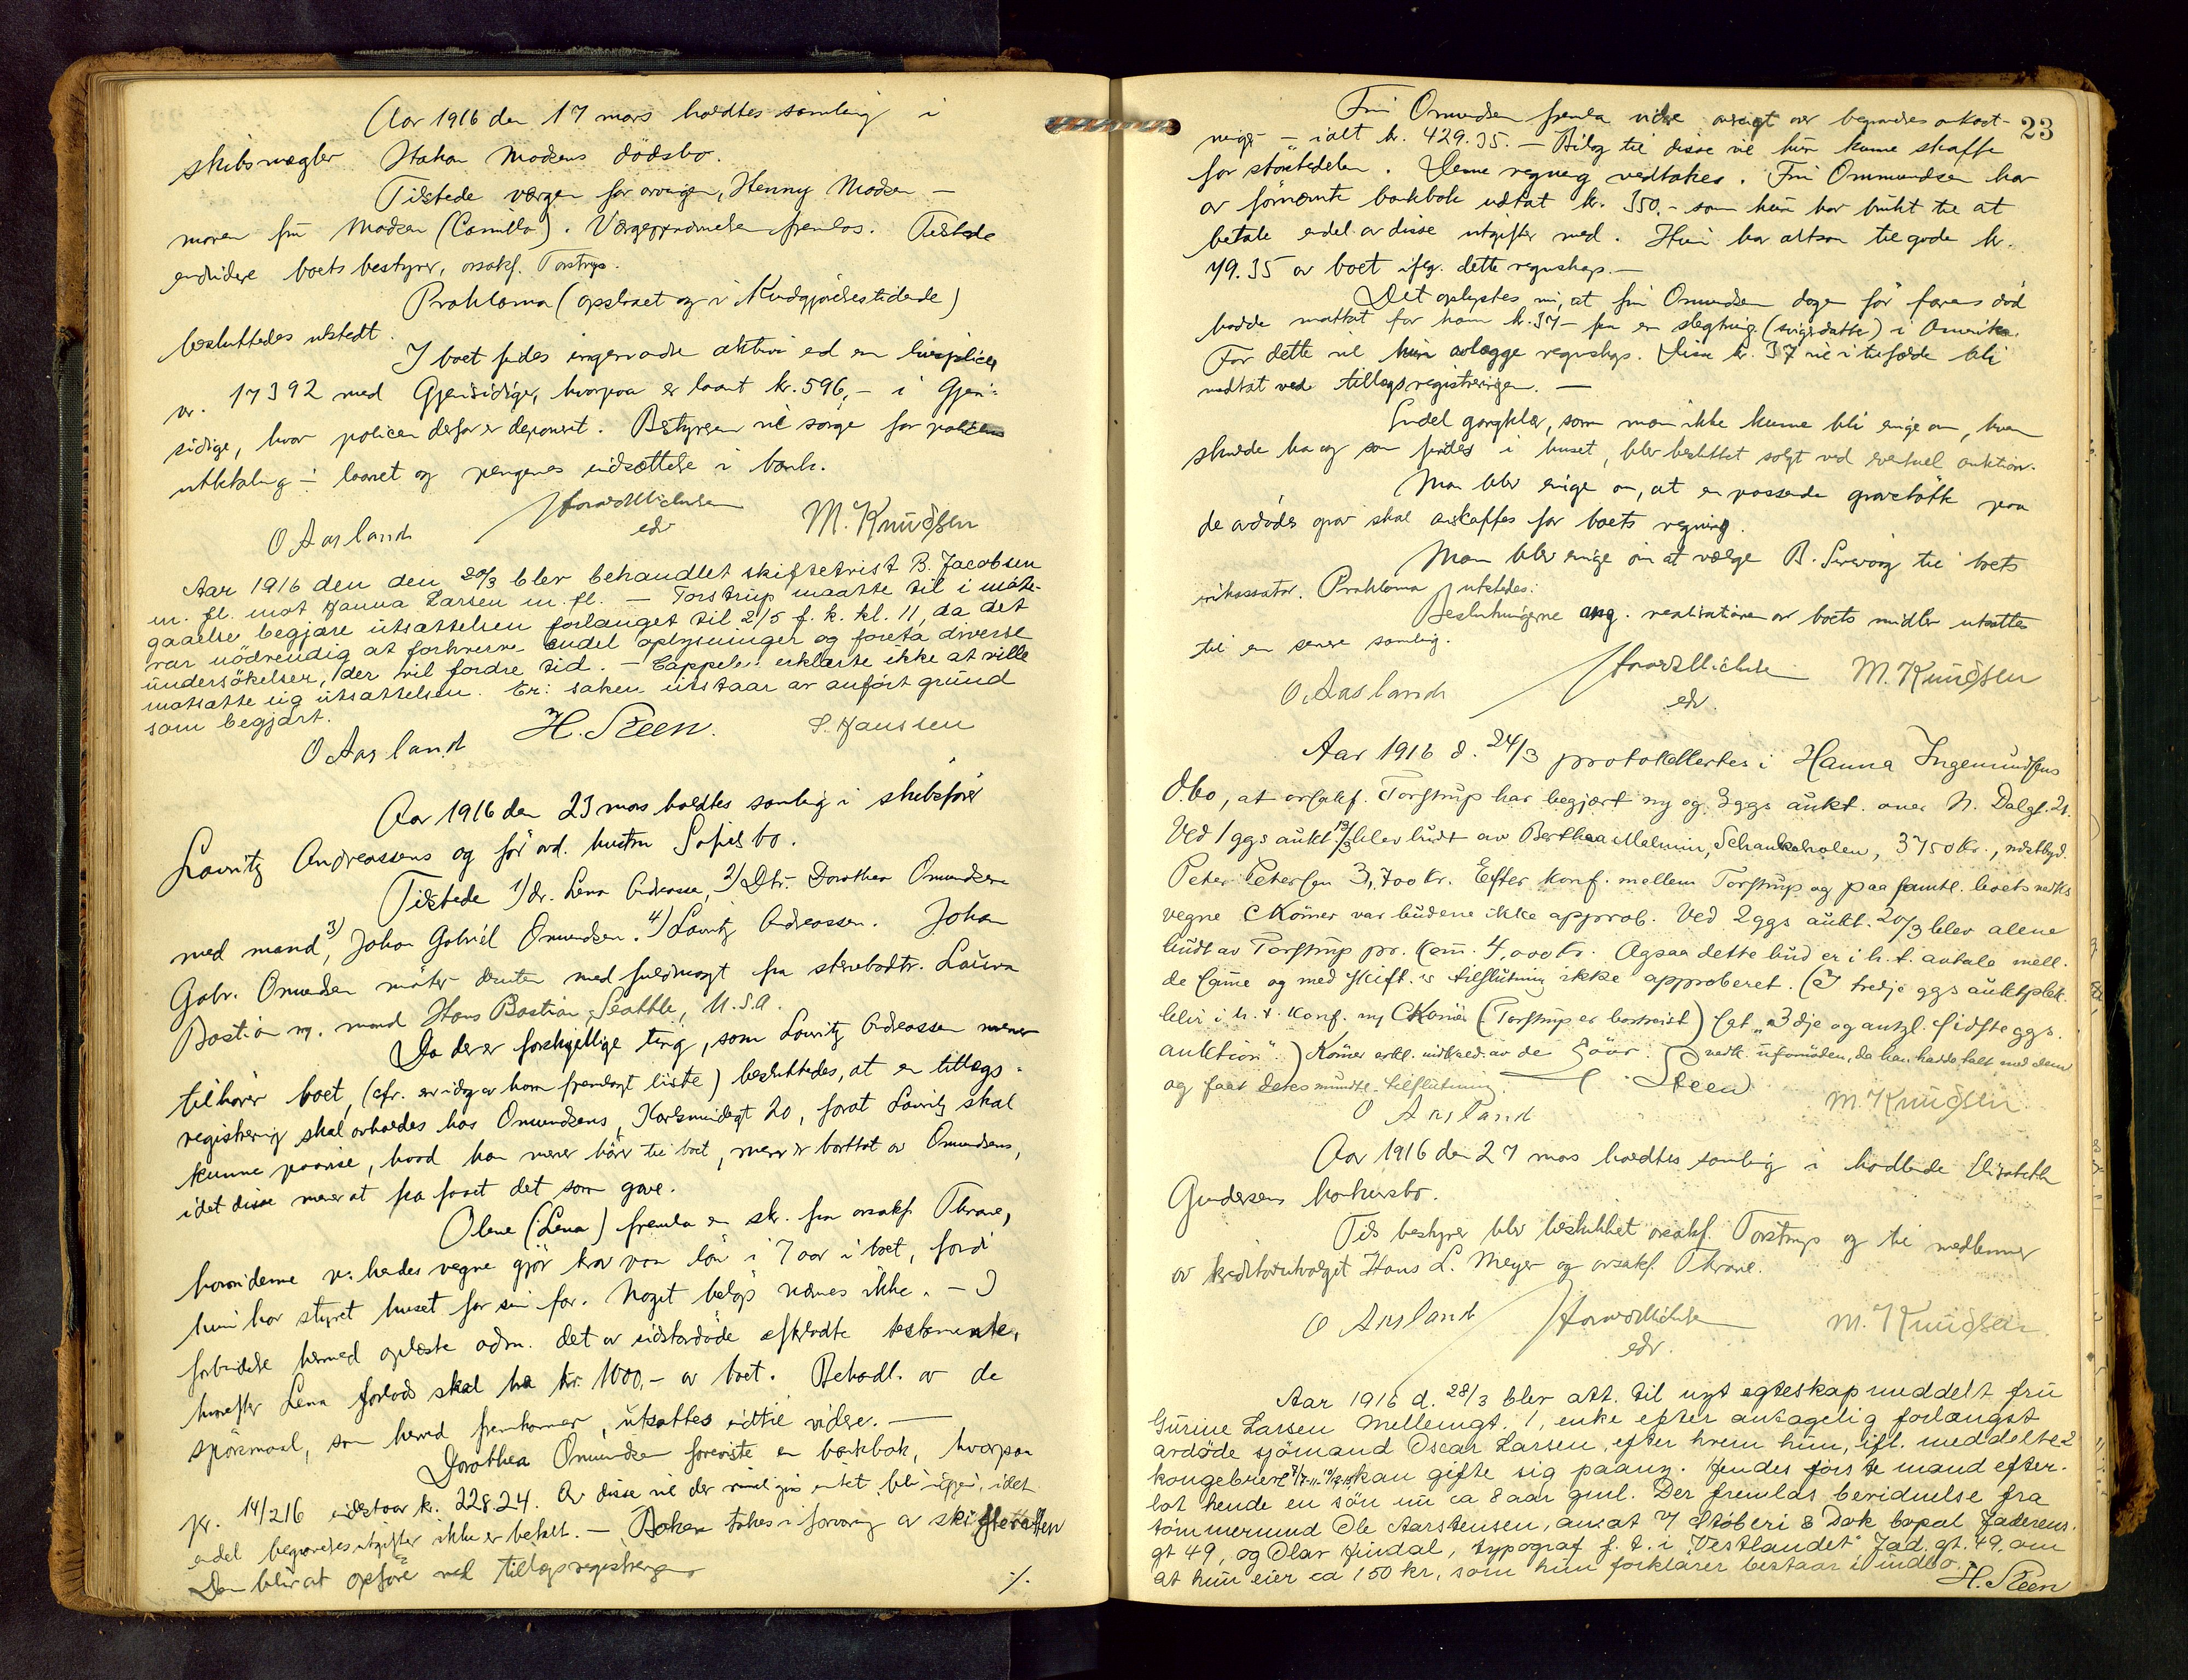 Aar 1916 den 17 mars holdtes samling i
skibsmægler Hakon Madsens dödsbo.
Tilstede værgen for arvingen, Henny Madsen –
moren fru Madsen (Camilla). Værgeopnævnelsen fremlas. Tilstede
endvidere boets bestyrer, orsakf. Torstrup.
Proklama (opslaaet og i Kundgjörelsestidende)
besluttedes utstedt.
I boet findes ingen andre aktiva end en livspolice
nr. 17392 med Gjensidige, hvorpaa er laant kr. 596,- i Gjen-
sidige, hvor policen derfor er deponert. Bestyreren vil sörge for policens
utbetaling ÷ laanet og pengenes indsættelse i bank.
O Aasland edv M. Knudsen
Aar 1916 den den 20/3 blev behandlet skiftetvist B. Jacobsen
m. fl. mot Hanna Larsen m. fl. – Torstrup maatte til i möte-
gaaelse begjære utsættelsen forlænget til 2/5 f. k. kl. 11, da det
var nödvendig at forhverve endel oplysninger og foreta diverse
undersökelser, der vil fordre tid. – Cappelen erklærte ikke at ville
motsætte sig utsættelsen. Er: saken utstaar av anfört grund
som begjært.
O Aasland H. Steen. S. Hanssen
Aar 1916 den 23 mars holdtes samling i skibsförer
Lauritz Andreassens og för avd. hustru Sofies bo.
Tilstede 1) dr. Lena Andreassen, 2) Dtr. Dorothea Omundsen
med mand, 3) Johan Gabriel Omundsen. 4) Lauritz Andreassen. Johan
Gabr. Omundsen möter desuten med fuldmagt fra stervbodtr. Laura
Bastian og mand Hans Bastian, Seattle, U.S.A.
Da der er forskjellige ting, som Lauritz Andreassen mener
tilhörer boet, (cfr. en idag av ham fremlagt liste) besluttedes, at en tillægs-
registrering skal avholdes hos Omundsens, Karlsmindegt 20, forat Lauritz skal
kunne paavise, hvad han mener hörer til boet, men er borttat av Omundsens,
idet disse mener at ha faaet det som gave.
Olene (Lena) fremla en skr. fra orsakf. Thrane,
hvori denne paa hendes vegne gjör krav paa lön i 7 aar i boet, fordi
hun har styret huset for sin far. Noget belöp nævnes ikke. – I
forbindelse hermed oplæste adm. det av sidstavdöde efterladte testamente,
hvorefter Lena forlods skal ha kr. 1000,- av boet. Behandl. av de
spörsmaal, som herved fremkommer, utsættes indtil videre. –
Dorothea Omundsen foreviste en bankbok, hvorpaa
pr. 14/2 16 indestaar kr. 228.24. Av disse vil der rimeligvis intet bli igjen, idet
endel begravelsesutgifter ikke er betalt. – Boken tages i forvaring av skifteretten
Den blir at opföre ved tillægsregistreringen
./.
23
Fru Omundsen fremla videre oversigt over begravelsesomkost-
ninger – ialt kr. 429.35. – Bilag til disse vil hun kunne skaffe
for störstedelen. Denne regning vedtakes. Fru Ommundsen har
av förnævnte bankbok uttat kr. 350,- som hun har brukt til at
betale endel av disse utgifter med. Hun har altsaa tilgode kr.
79.35 av boet ifölg. dette regnskap. –
Det oplystes nu, at fru Omundsen dagen för farens död
hadde mottat for ham kr. 37 – fra en slegtning (svigerdatter) i Amerika.
For dette vil hun avlægge regnskap. Disse kr. 37 vil i tilfælde bli
medtat ved tillægsregistreringen. –
Endel gangklær, som man ikke kunne bli enige om, hvem
skulde ha og som findes i huset, blev besluttet solgt ved eventuel auktion.
Man blev enige om, at en passende gravstötte paa
de avdödes grav skal anskaffes for boets regning.
Man blev enige om at vælge B. til boets
inkassator. Proklama utstedes.
Beslutningerne ang. realisationen av boets midler utsættes
til en senere samling.
O. Aasland edv. M. Knudsen
Aar 1916 d. 24/3 protokollertes i Hanna Ingemundsens
d.bo, at orsakf. Torstrup har begjært ny og 3ggs aukt. over N. Dalgt. 21.
Ved 1ggs aukt 13/3 blev budt av Berthea Malmin, Schankeholen, 3750 kr., næstbyd.
Peter Petersen 3,700 kr. Efter konf. mellem Torstrup og paa samtl. boets vedk.s
vegne C Kömer var budene ikke approb. Ved 2ggs aukt. 20/3 blev alene
budt av Torstrup pr. kom. 4,000 kr. Ogsaa dette bud er i h. t. avtale mell.
de samme og med skift.s tilslutning ikke approberet. (I tredje ggs auktplak.
blir i h. t. konf. m/ C Kömer (Torstrup er bortreist) sat „3dje og antgl. sidste ggs.
auktion".) Kömer erkl. indkald. av de övr. vedk. ufornöden, da han hadde talt med dem
og faat deres mundtl. tilslutning. Steen
O Aasland M Knudsen.
Aar 1916 den 27 mars holdtes samling i handlende Elisabeth
Gundersens konkursbo.
Til bestyrer blev beskikket orsakf. Torstrup og til medlemmer
av kreditorutvalget Hans L. Meyer og orsakf. Thrane.
O Aasland edv. M. Knudsen
Aar 1916 d. 28/3 blev att. til nyt egteskap meddelt fru
Gurine Larsen Mellemgt. 1, enke efter antagelig forlængst
avdöde sjömand Oscar Larsen, efter hvem hun, ifl. meddelte 2
kongebrev kan gifte sig paany. Hendes förste mand efter-
lot hende en sön nu ca 8 aar gml. Der fremlas bevidnelse fra
tömmermand Ole Aarstensen, ansat v/ Stöberi & Dok bopæl Jæderens
gt 49, og Olav Lindal, typograf f. t. i „Vestlandet" Jæd. gt. 49, om
at hun eier ca 150 kr, som hun forklarer bestaar i indbo.
H. Steen